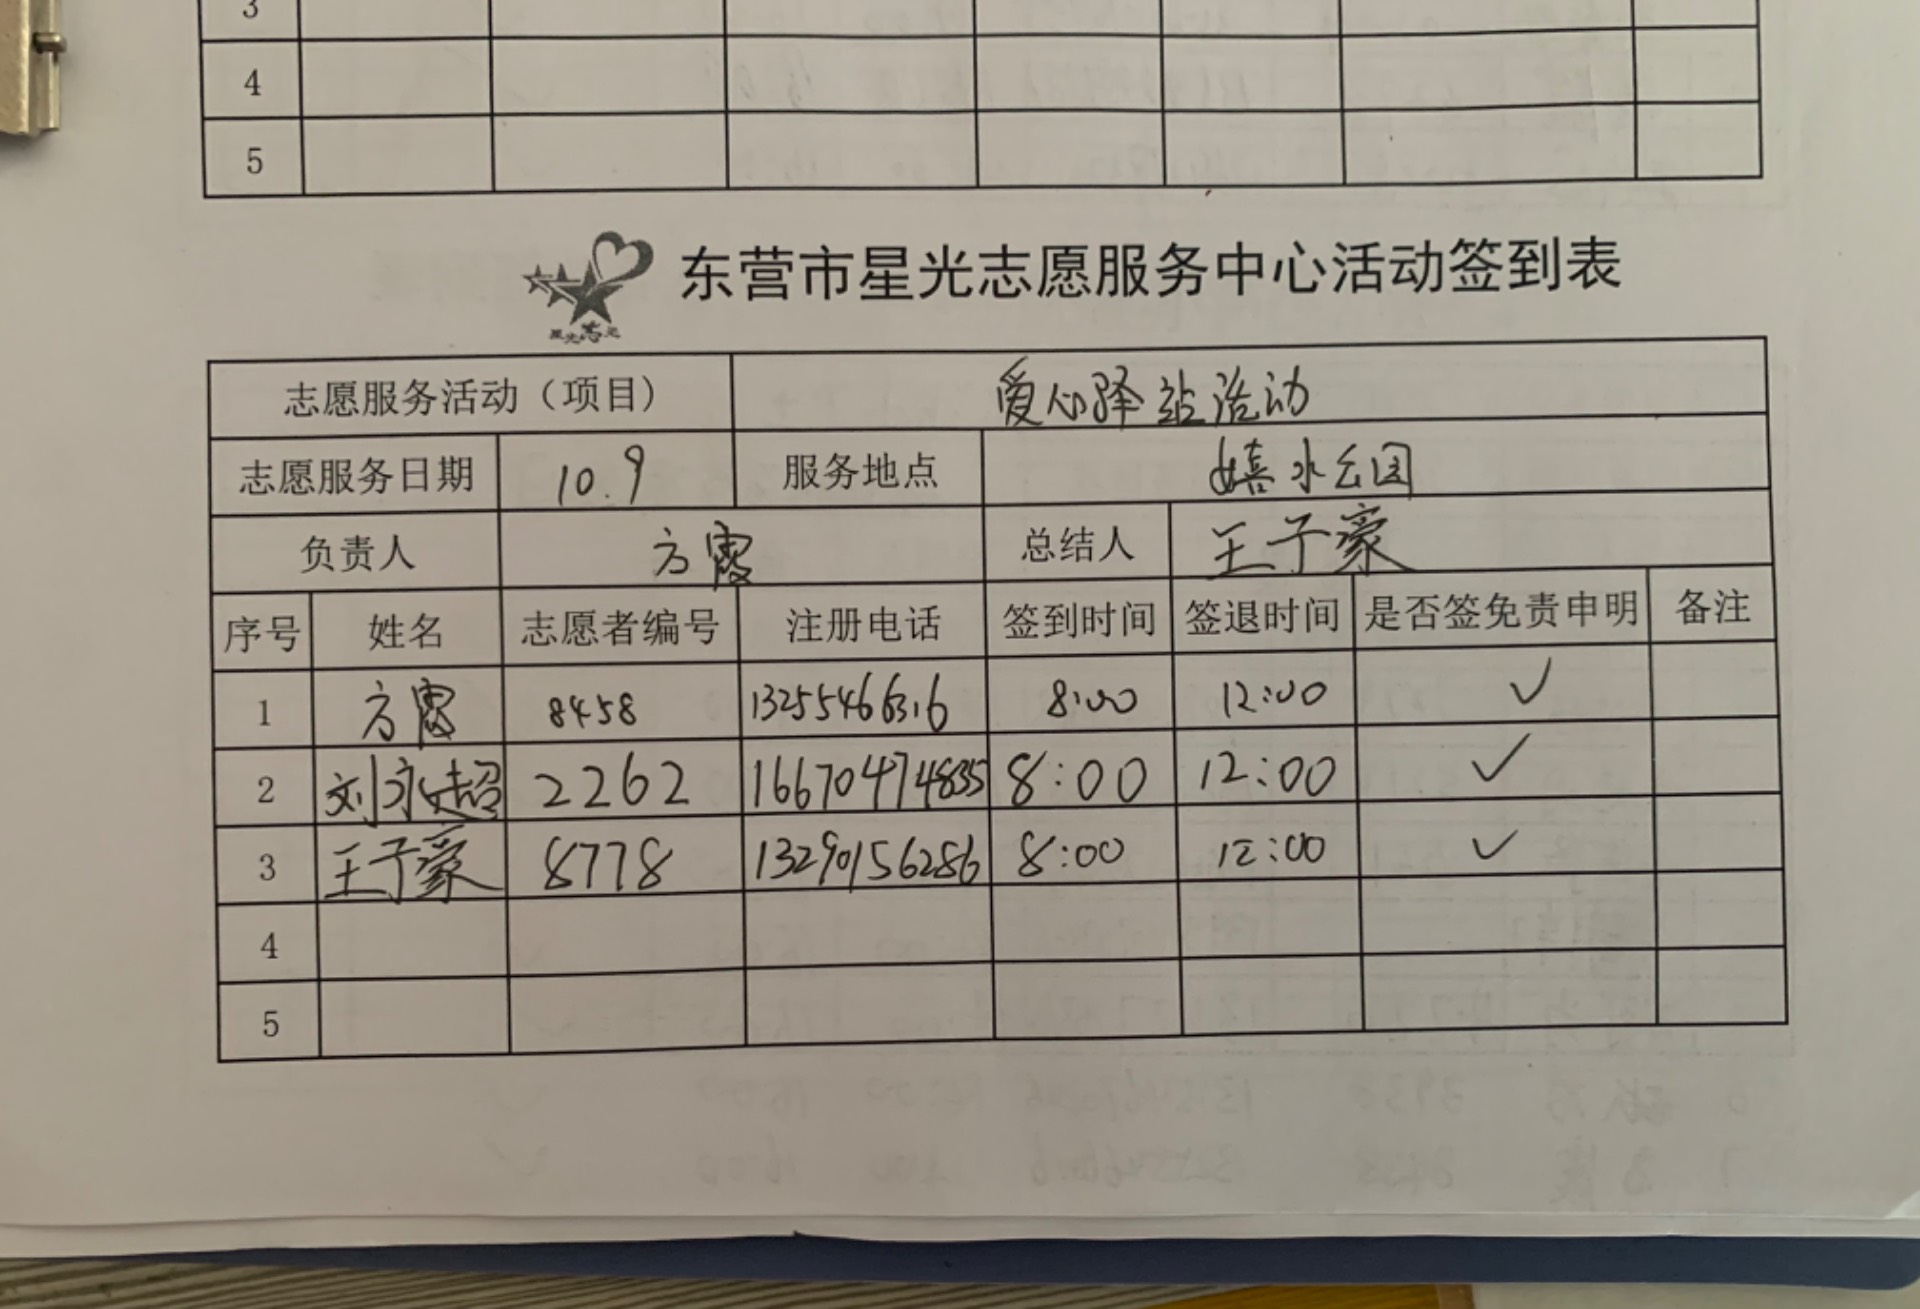 3
4
5
星光志愿
东营市星光志愿服务中心活动签到表
志愿服务活动（项目） 爱心驿站活动
志愿服务日期 10.9 服务地点 嬉水公园
负责人 方霞 总结人 王子豪
序号 姓名 志愿者编号 注册电话 签到时间 签退时间 是否签免责申明 备注
1 方霞 8458 13255466316 8:00 12:00 ✓
2 刘永超 2262 16670474835 8:00 12:00 ✓
3 王子豪 8778 13290156286 8:00 12:00 ✓
4
5